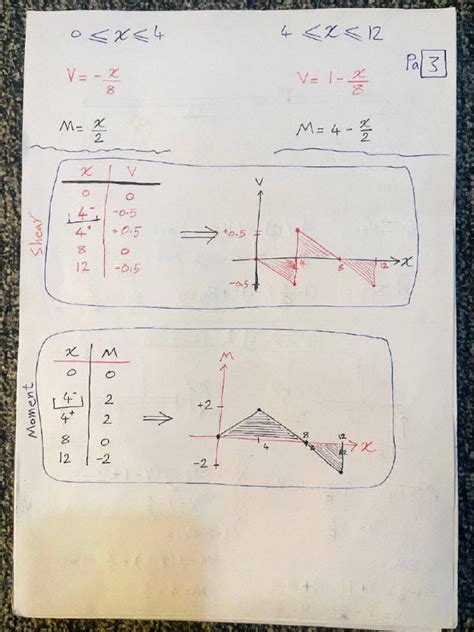 0 ≤ x ≤ 4    4 ≤ x ≤ 12
Pa 3
V = -x/8    V = 1 - x/8
M = x/2    M = 4 - x/2
Shear
x    V
0    0
4⁻    -0.5
4⁺    +0.5
8    0
12    -0.5
⇒
V
+0.5
-0.5
4    8    12
x
Moment
x    M
0    0
4⁻    2
4⁺    2
8    0
12    -2
⇒
M
+2
-2
4    8    12
x